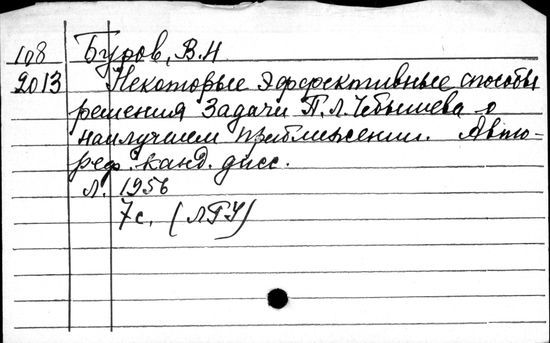 108 Буров, В.Н
2013 Некоторые эффективные способы
решения задачи П.Л. Чебышева о
наилучшем приближении. Авто-
реф. канд. дисс.
Л. 1956
7с. (ЛГУ)